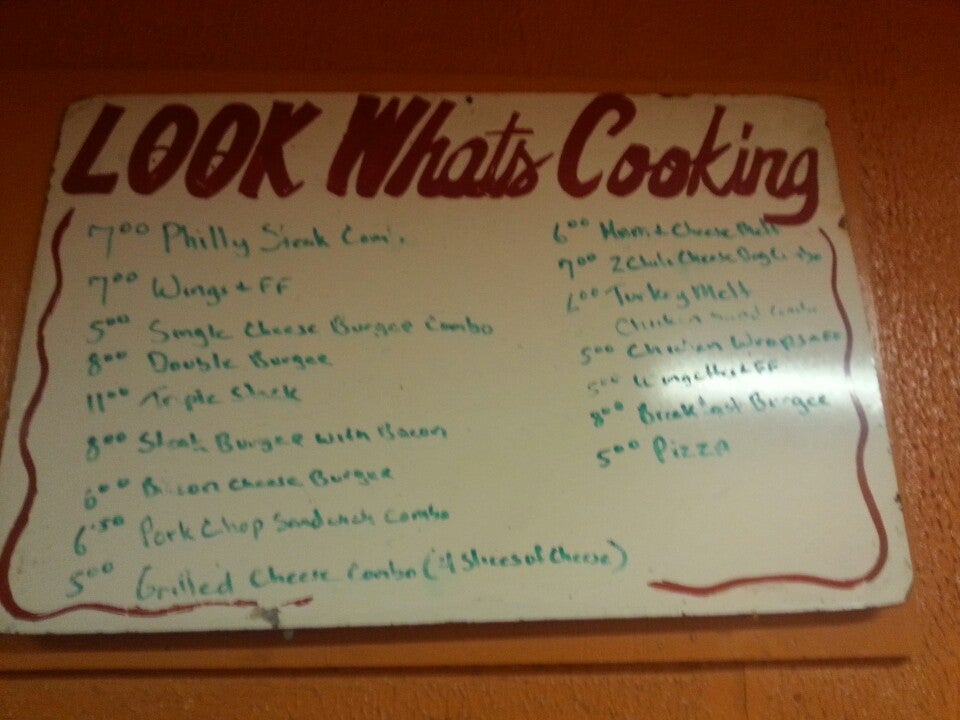 LOOK Whats Cooking
7.00 Philly Steak Com.
7.00 Wings + FF
5.00 Single Cheese Burger Combo
8.00 Double Burger
11.00 Triple Stack
8.00 Steak Burger with Bacon
6.00 Bacon Cheese Burger
6.50 Pork Chop Sandwich Combo
5.00 Grilled Cheese Combo (4 Slices of Cheese)
6.00 Ham & Cheese Melt
7.00 2 Chili Cheese Dog
6.00 Turkey Melt
Chicken Sand Combo
5.00 Chicken Wraps
5.00 + FF
8.00 Breakfast Burger
5.00 Pizza